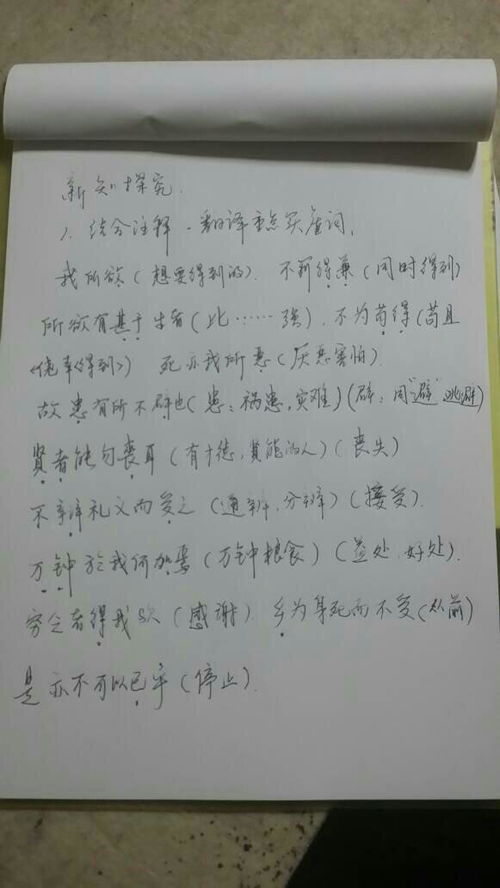 新知探究.
1、结合注释,翻译重点实虚词。
我所欲(想要得到的). 不可得兼(同时得到)
所欲有甚于生者(比……强). 不为苟得(苟且
侥幸得到) 死亦我所恶(厌恶害怕).
故患有所不辟也(患:祸患,灾难)(辟:同“避”逃避)
贤者能勿丧耳(有才德,贤能的人)(丧失)
不辩礼义而受之(通辨,分辨)(接受).
万钟于我何加焉(万钟粮食)(益处、好处).
穷乏者得我欤(感谢) 乡为身死而不受(从前)
是亦不可以已乎(停止).